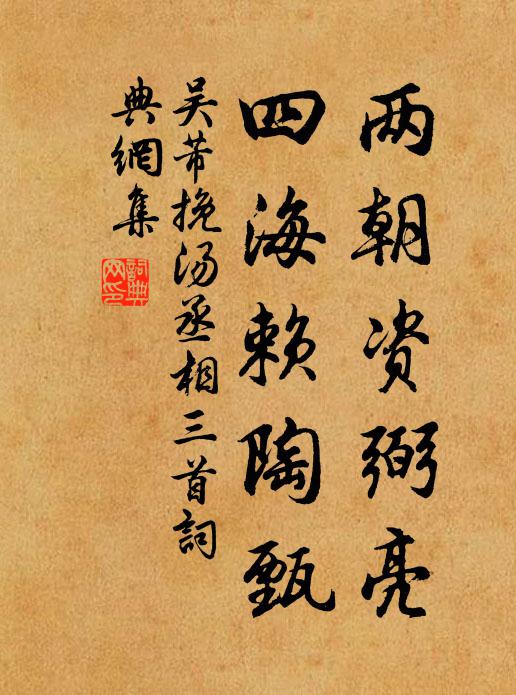 两朝资弼亮
四海赖陶甄
吴芾挽汤丞相三首詞
典網集
詞典
网印